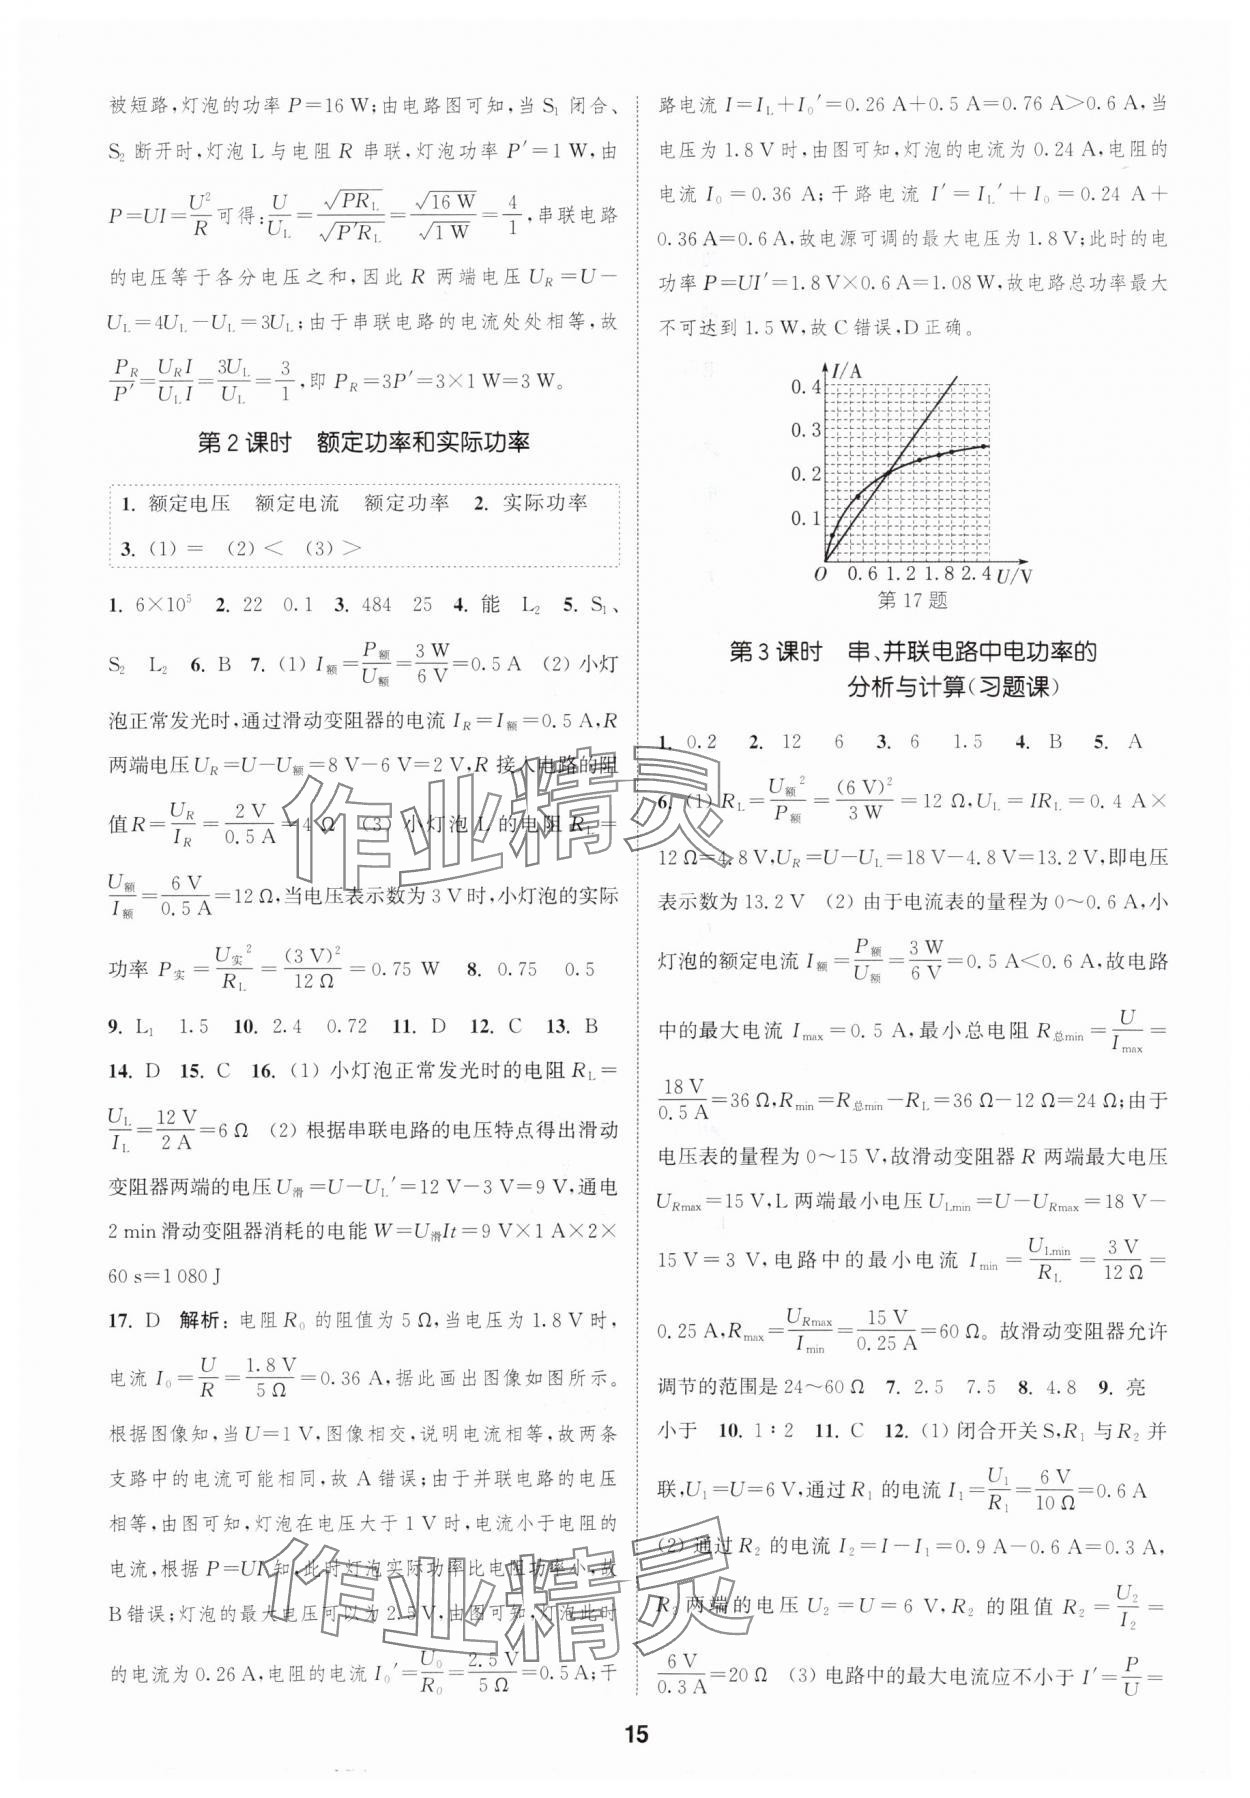 被短路,灯泡的功率 P=16 W;由电路图可知,当 S₁ 闭合、
S₂ 断开时,灯泡 L 与电阻 R 串联,灯泡功率 P′=1 W,由
P=UI=U²/R 可得:U/U_L=√(PR_L)/√(P′R_L)=√(16 W)/√(1 W)=4/1,串联电路
的电压等于各分电压之和,因此 R 两端电压 U_R=U-
U_L=4U_L-U_L=3U_L;由于串联电路的电流处处相等,故
P_R/P′=U_R I/U_L I=3U_L/U_L=3/1,即 P_R=3P′=3×1 W=3 W。
第 2 课时 额定功率和实际功率
1. 额定电压 额定电流 额定功率 2. 实际功率
3. (1) = (2) < (3) >
1. 6×10⁵ 2. 22 0.1 3. 484 25 4. 能 L₂ 5. S₁、
S₂ L₂ 6. B 7. (1) I额=P额/U额=3 W/6 V=0.5 A (2) 小灯
泡正常发光时,通过滑动变阻器的电流 I_R=I额=0.5 A,R
两端电压 U_R=U-U额=8 V-6 V=2 V,R 接入电路的阻
值 R=U_R/I_R=2 V/0.5 A=4 Ω (3) 小灯泡 L 的电阻 R_L=
U额/I额=6 V/0.5 A=12 Ω,当电压表示数为 3 V 时,小灯泡的实际
功率 P实=U实²/R_L=(3 V)²/12 Ω=0.75 W 8. 0.75 0.5
9. L₁ 1.5 10. 2.4 0.72 11. D 12. C 13. B
14. D 15. C 16. (1) 小灯泡正常发光时的电阻 R_L=
U_L/I_L=12 V/2 A=6 Ω (2) 根据串联电路的电压特点得出滑动
变阻器两端的电压 U滑=U-U_L′=12 V-3 V=9 V,通电
2 min 滑动变阻器消耗的电能 W=U滑It=9 V×1 A×2×
60 s=1 080 J
17. D 解析:电阻 R₀ 的阻值为 5 Ω,当电压为 1.8 V 时,
电流 I₀=U/R=1.8 V/5 Ω=0.36 A,据此画出图像如图所示。
根据图像知,当 U=1 V,图像相交,说明电流相等,故两条
支路中的电流可能相同,故 A 错误;由于并联电路的电压
相等,由图可知,灯泡在电压大于 1 V 时,电流小于电阻的
电流,根据 P=UI 知,此时灯泡实际功率比电阻功率小,故
B 错误;灯泡的最大电压可以为 2.5 V,由图可知,灯泡此时
的电流为 0.26 A,电阻的电流 I₀′=U₀/R₀=2.5 V/5 Ω=0.5 A;干
路电流 I=I_L+I₀′=0.26 A+0.5 A=0.76 A>0.6 A,当
电压为 1.8 V 时,由图可知,灯泡的电流为 0.24 A,电阻的
电流 I₀=0.36 A;干路电流 I′=I_L′+I₀=0.24 A+
0.36 A=0.6 A,故电源可调的最大电压为 1.8 V;此时的电
功率 P=UI′=1.8 V×0.6 A=1.08 W,故电路总功率最大
不可达到 1.5 W,故 C 错误,D 正确。
I/A
0.4
0.3
0.2
0.1
O 0.6 1.2 1.8 2.4 U/V
第 17 题
第 3 课时 串、并联电路中电功率的
分析与计算(习题课)
1. 0.2 2. 12 6 3. 6 1.5 4. B 5. A
6. (1) R_L=U额²/P额=(6 V)²/3 W=12 Ω,U_L=IR_L=0.4 A×
12 Ω=4.8 V,U_R=U-U_L=18 V-4.8 V=13.2 V,即电压
表示数为 13.2 V (2) 由于电流表的量程为 0~0.6 A,小
灯泡的额定电流 I额=P额/U额=3 W/6 V=0.5 A<0.6 A,故电路
中的最大电流 I_max=0.5 A,最小总电阻 R总min=U/I_max=
18 V/0.5 A=36 Ω,R_min=R总min-R_L=36 Ω-12 Ω=24 Ω;由于
电压表的量程为 0~15 V,故滑动变阻器 R 两端最大电压
U_Rmax=15 V,L 两端最小电压 U_Lmin=U-U_Rmax=18 V-
15 V=3 V,电路中的最小电流 I_min=U_Lmin/R_L=3 V/12 Ω=
0.25 A,R_max=U_Rmax/I_min=15 V/0.25 A=60 Ω。故滑动变阻器允许
调节的范围是 24~60 Ω 7. 2.5 7.5 8. 4.8 9. 亮
小于 10. 1∶2 11. C 12. (1) 闭合开关 S,R₁ 与 R₂ 并
联,U₁=U=6 V,通过 R₁ 的电流 I₁=U₁/R₁=6 V/10 Ω=0.6 A
(2) 通过 R₂ 的电流 I₂=I-I₁=0.9 A-0.6 A=0.3 A,
R₂ 两端的电压 U₂=U=6 V,R₂ 的阻值 R₂=U₂/I₂=
6 V/0.3 A=20 Ω (3) 电路中的最大电流应不小于 I′=P/U=
15
作业精灵
作业精灵